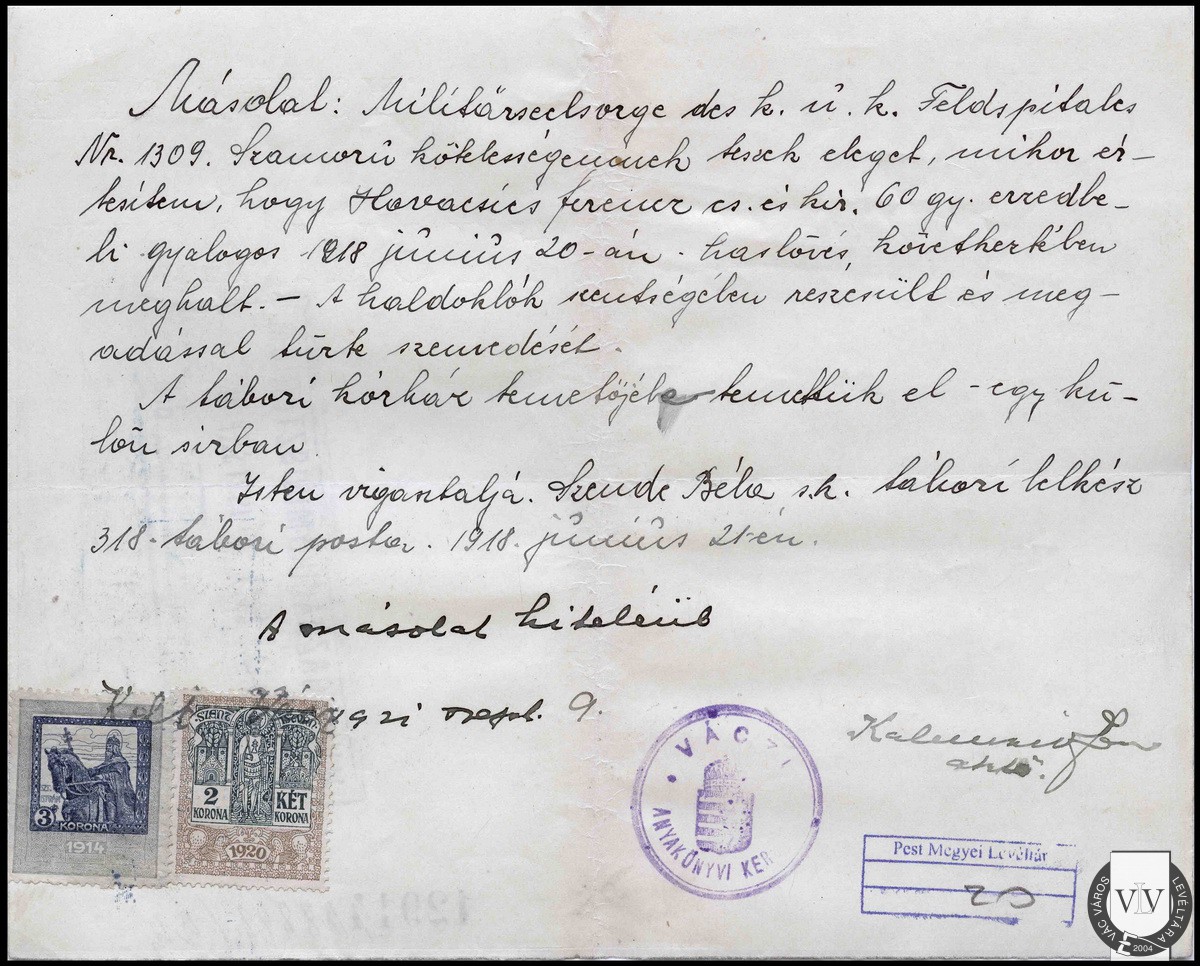 Másolat: Militärseelsorge des k. u. k. Feldspitales
Nr. 1309. Szamorú kötelességemnek teszek eleget, mikor ér-
tesítem, hogy Kovacsics Ferencz cs. és kir. 60 gy. ezredbe-
li gyalogos 1918 június 20-án haslövés, következtében
meghalt. - A haldoklók szentségében részesült és meg-
adással tűrte szenvedését.
A tábori kórház temetőjébe temettük el - egy kü-
lön sirban.
Isten vigasztalja. Szende Béla s.k. tábori lelkész
318. tábori posta. 1918. június 21-én.
A másolat hiteléül
szept. 9.
SZENT ISTVÁN
2 KORONA
KÉT KORONA
1920
3 KORONA
1914
VÁCZI
ANYAKÖNYVI KER
Pest Megyei Levéltár
20
VÁC VÁROS LEVÉLTÁRA
VLV
2004